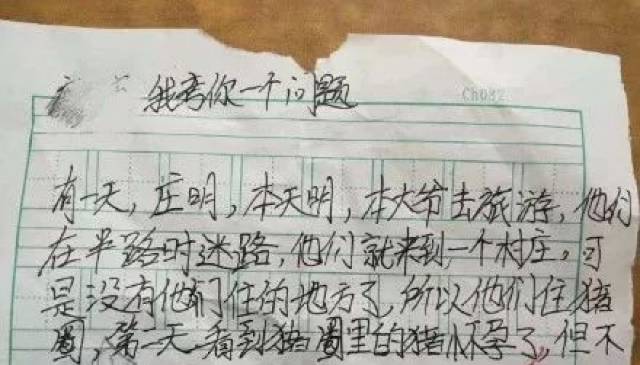 我考你一个问题
Ch032
有一天，庄明，本天明，本大爷去旅游，他们
在半路时迷路，他们就来到一个村庄。可
是没有他们住的地方了，所以他们住猪
圈，第二天看到猪圈里的猪怀孕了，但不